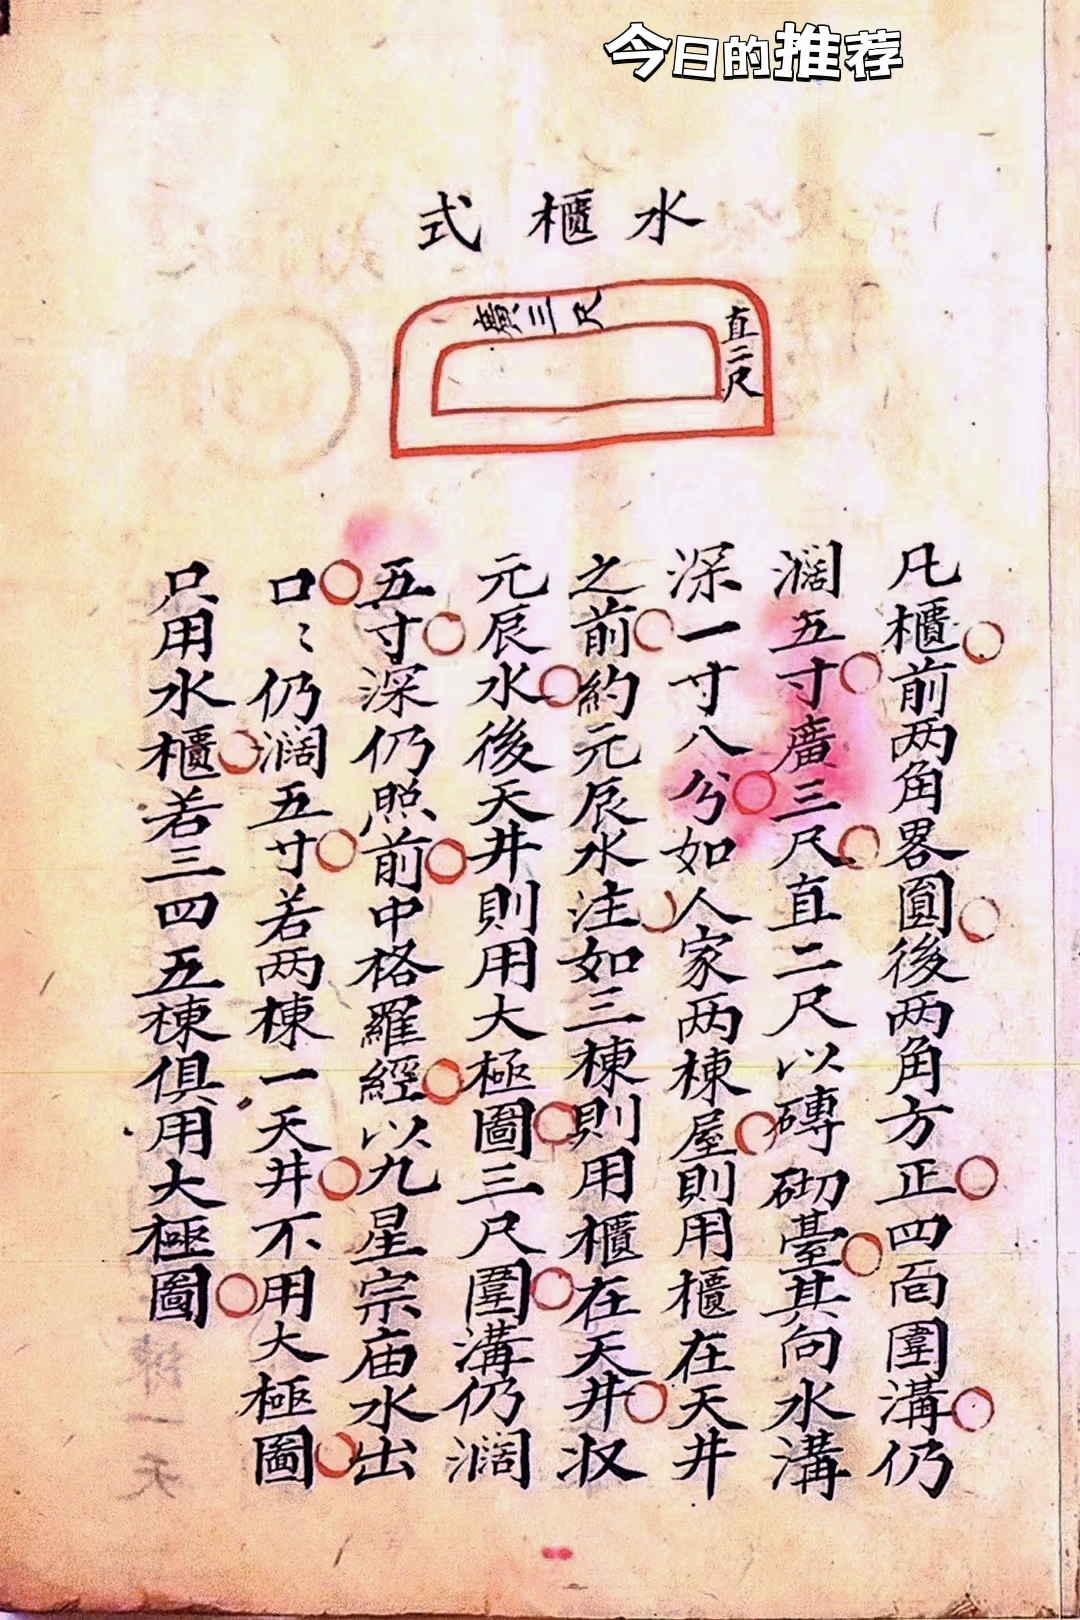 今日的推荐
水櫃式
廣三尺
直二尺
凡櫃前两角畧圓後两角方正四面圍溝仍
濶五寸廣三尺直二尺以磚砌臺其向水溝
深一寸八分如人家两棟屋則用櫃在天井
之前約元辰水注如三棟則用櫃在天井収
元辰水後天井則用大極圖三尺圍溝仍濶
五寸深仍照前中格羅經以九星宗庙水出
口〻仍濶五寸若两棟一天井不用大極圖
只用水櫃若三四五棟俱用大極圖